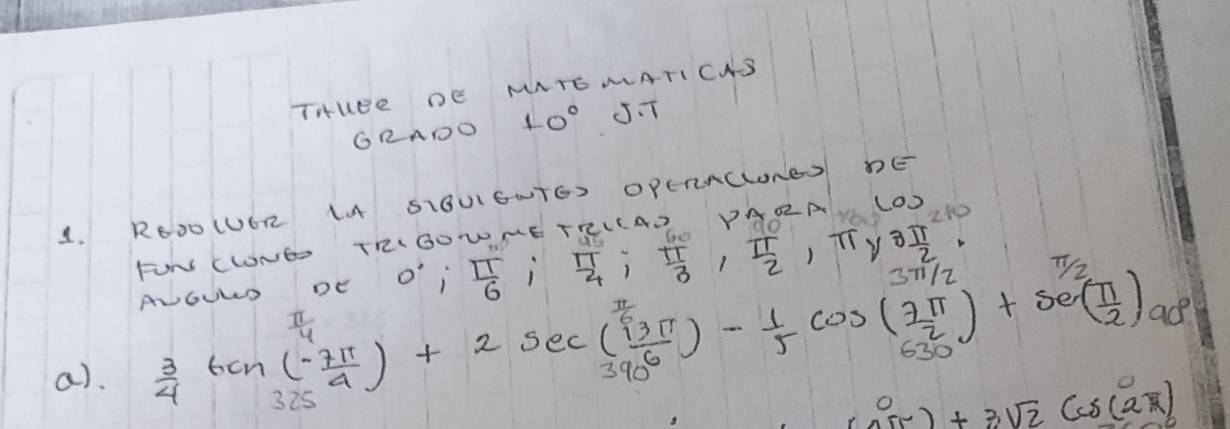 TALLER DE MATEMATICAS
GRADO 10° J.T
1. RESOLVER LA SIGUIENTES OPERACIONES DE
FUNCIONES TRIGONOMETRICAS PARA LOS
45 60 90 180 270
ANGULOS DE 0°; π/6; π/4; π/3, π/2, π y 3π/2.
π/4 π/6 3π/2 π/2
a). 3/4 sen (-7π/4) + 2 sec (13π/6) - 1/5 cos (7π/2) + sen (π/2) 90°
325 390 630
0 0
) + 3√2 Cos (2π)